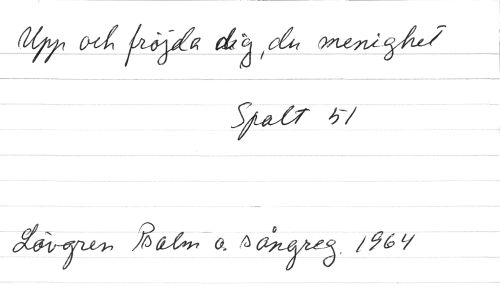 Upp och fröjda dig, du menighet
Spalt 51
Lövgren Psalm o. sångreg. 1964